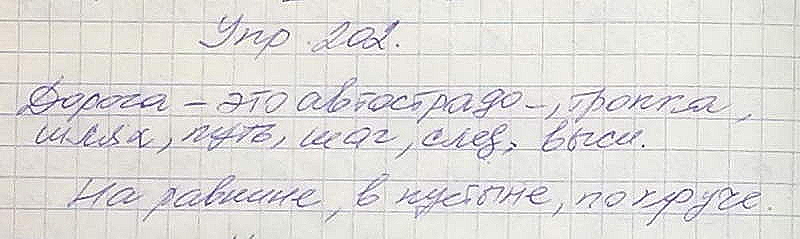 Упр. 202.
Дорога – это автострадо–, тропка,
шлях, путь, шаг, след, выси.
На равнине, в пустыне, по круче.